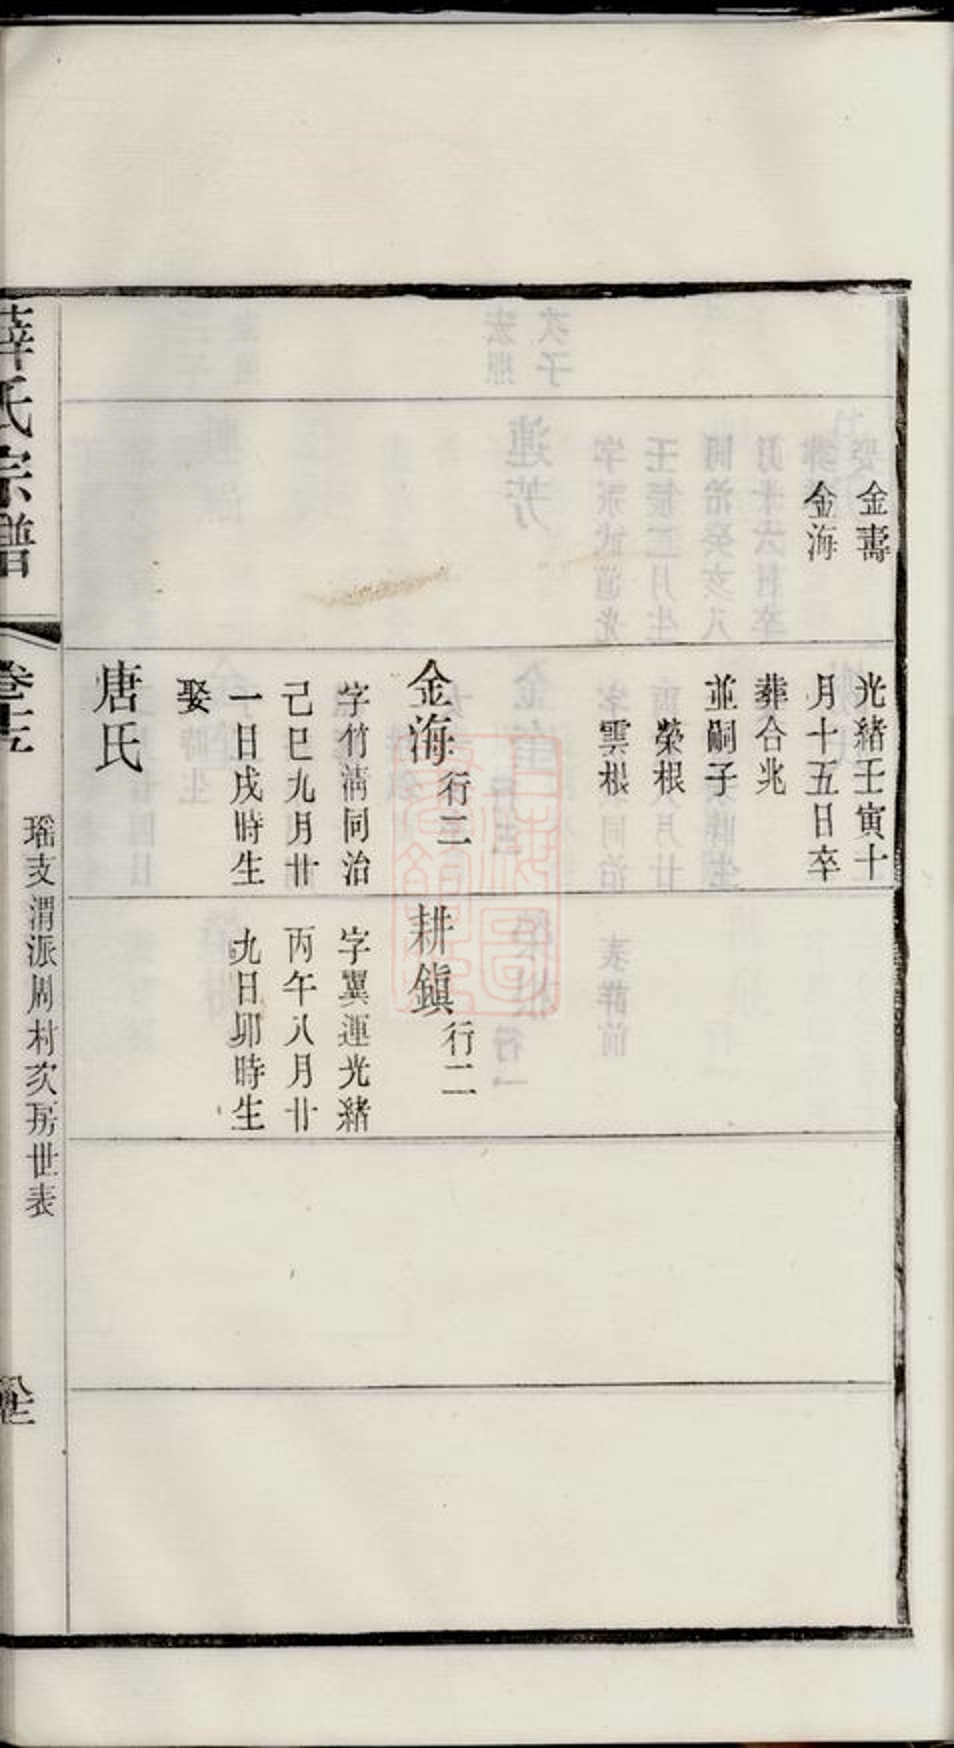 金壽
金海
光緒壬寅十
月十五日卒
葬合兆
並嗣子
榮根
雲根
金海行二
字竹漪同治
己巳九月廿
一日戌時生
娶
唐氏
耕鎭行二
字翼運光緒
丙午八月廿
九日卯時生
薛氏宗譜
卷十五
瑶支渭派周村次房世表